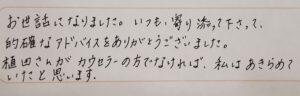 お世話になりました。いつも寄り添って下さって、
的確なアドバイスをありがとうございました。
植田さんがカウセラーの方でなければ、私はあきらめて
いたと思います.